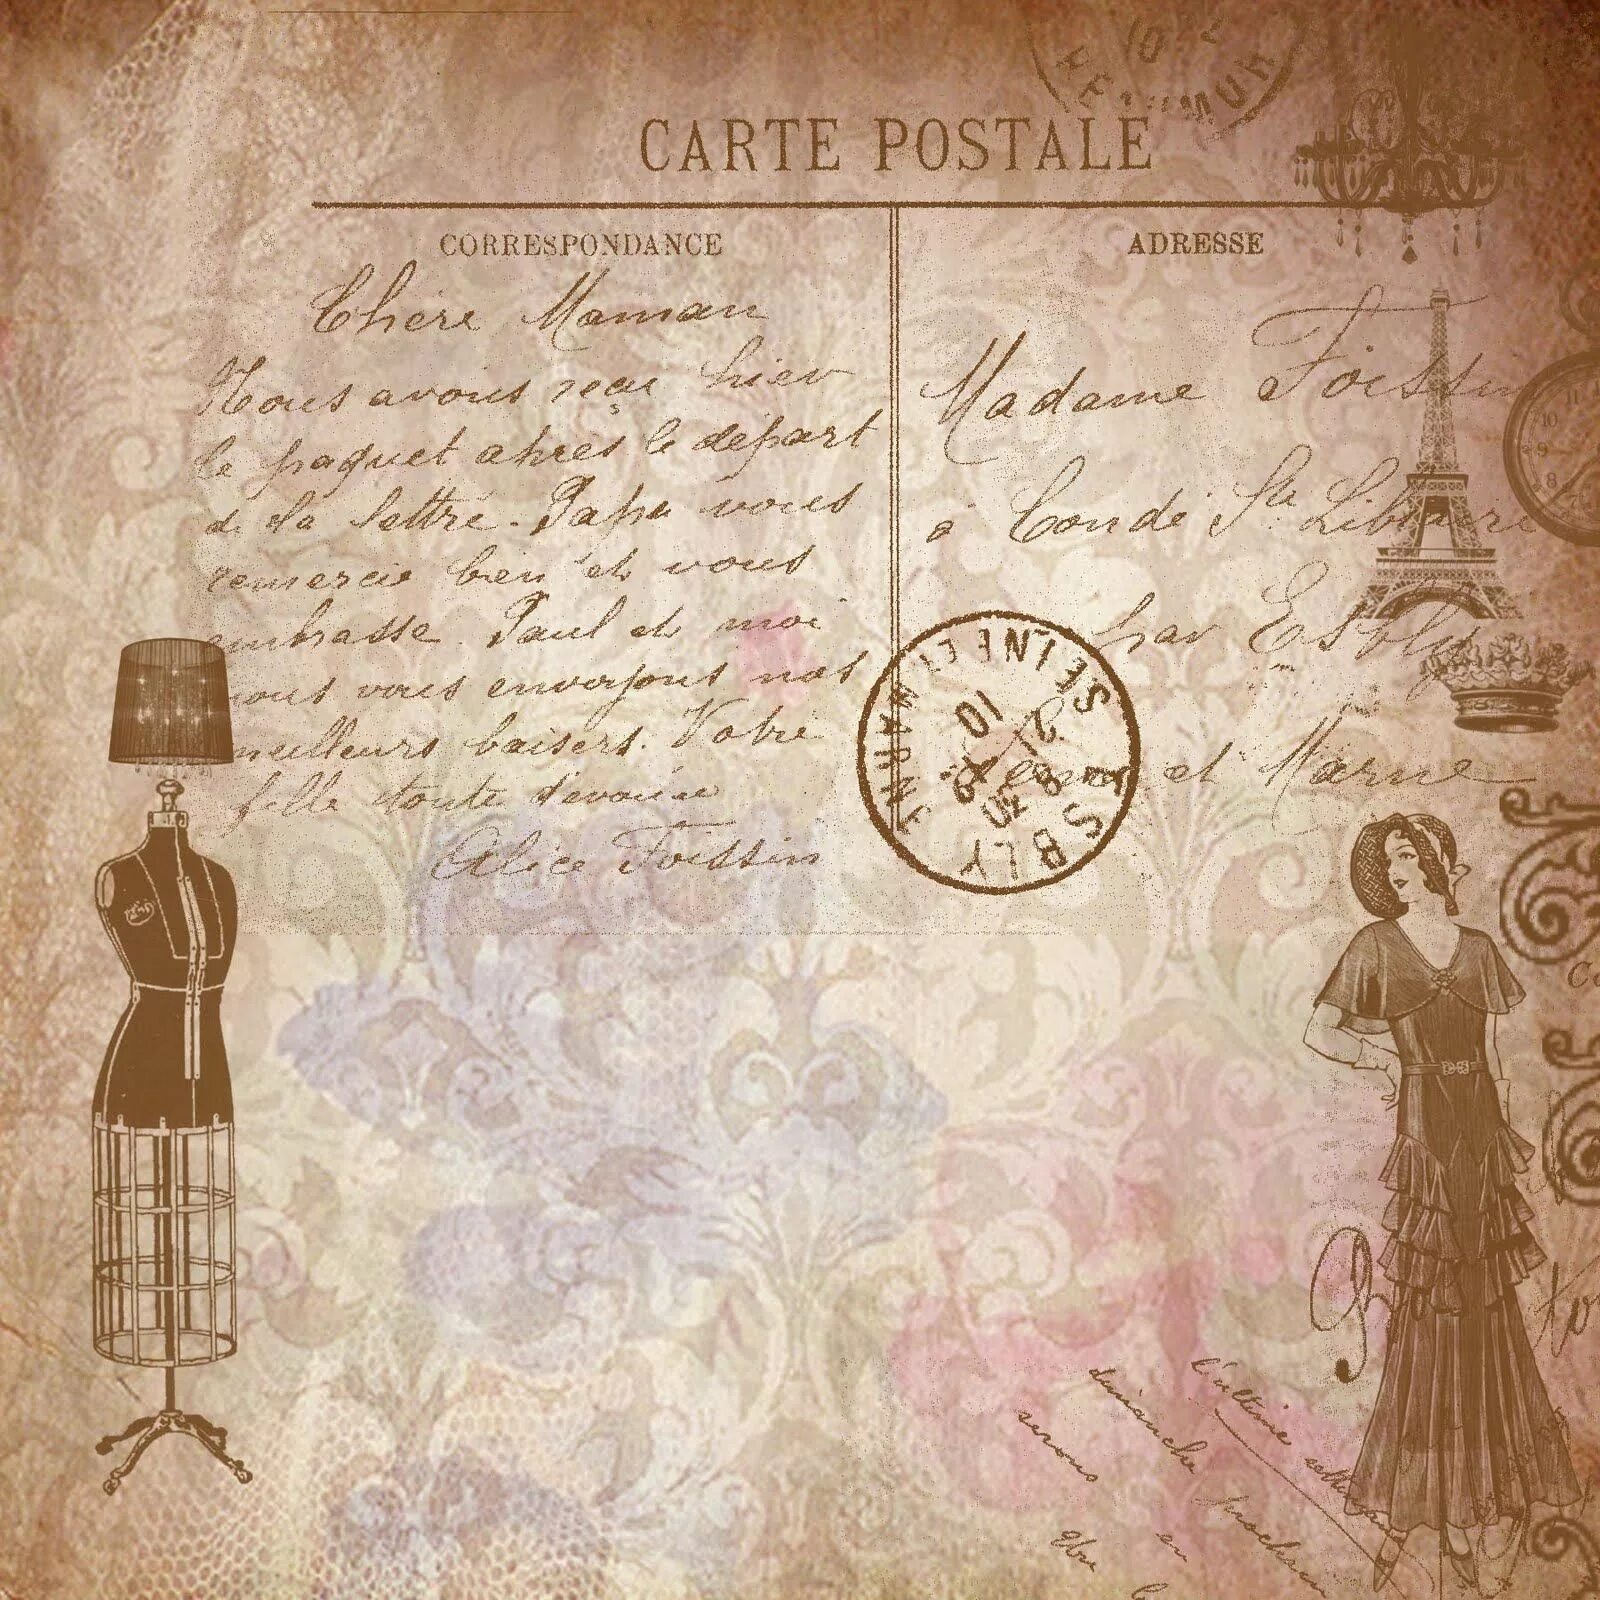 CARTE POSTALE
CORRESPONDANCE
Chère Maman
Nous avons reçu hier
le paquet après le départ
de la lettre. Papa vous
remercie bien et vous
embrasse. Paul et moi
nous vous envoyons nos
meilleurs baisers. Votre
fille toute dévouée
Alice Foissin
ADRESSE
Madame Foissin
à Condé Ste Libiaire
par Esbly
Seine et Marne
ESBLY
SEINE ET MARNE
10
21
10 11
9
8
l'ultime
dimanche prochain
serons en